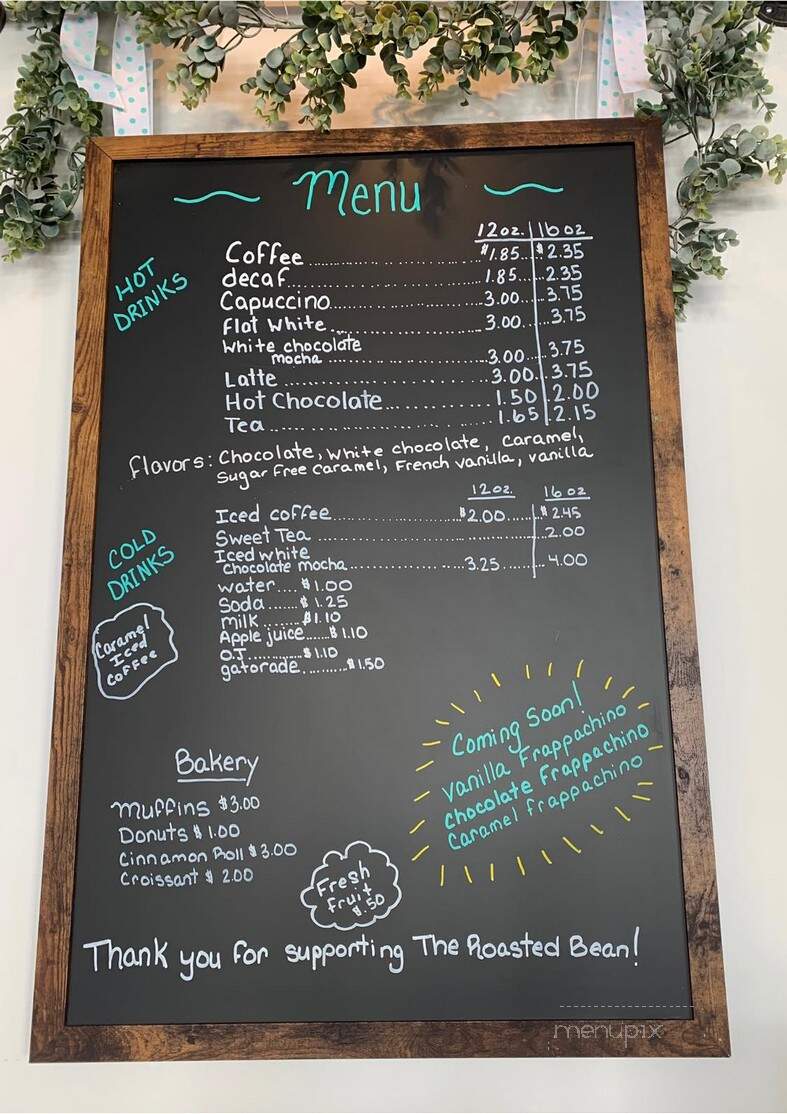 Menu
12oz. 16oz
HOT
DRINKS
Coffee $1.85 $2.35
decaf 1.85 2.35
Capuccino 3.00 3.75
Flat White 3.00 3.75
White chocolate
mocha 3.00 3.75
Latte 3.00 3.75
Hot Chocolate 1.50 2.00
Tea 1.65 2.15
flavors: Chocolate, white chocolate, caramel,
Sugar free caramel, French vanilla, vanilla
12oz. 16oz
COLD
DRINKS
Iced coffee $2.00 $2.45
Sweet Tea 2.00
Iced white
chocolate mocha 3.25 4.00
water $1.00
Soda $1.25
milk $1.10
Apple juice $1.10
O.J. $1.10
gatorade $1.50
Caramel
Iced
Coffee
Coming Soon!
Vanilla Frappachino
Chocolate Frappachino
Caramel frappachino
Bakery
Muffins $3.00
Donuts $1.00
Cinnamon Roll $3.00
Croissant $2.00
Fresh
fruit
$.50
Thank you for supporting The Roasted Bean!
menupix